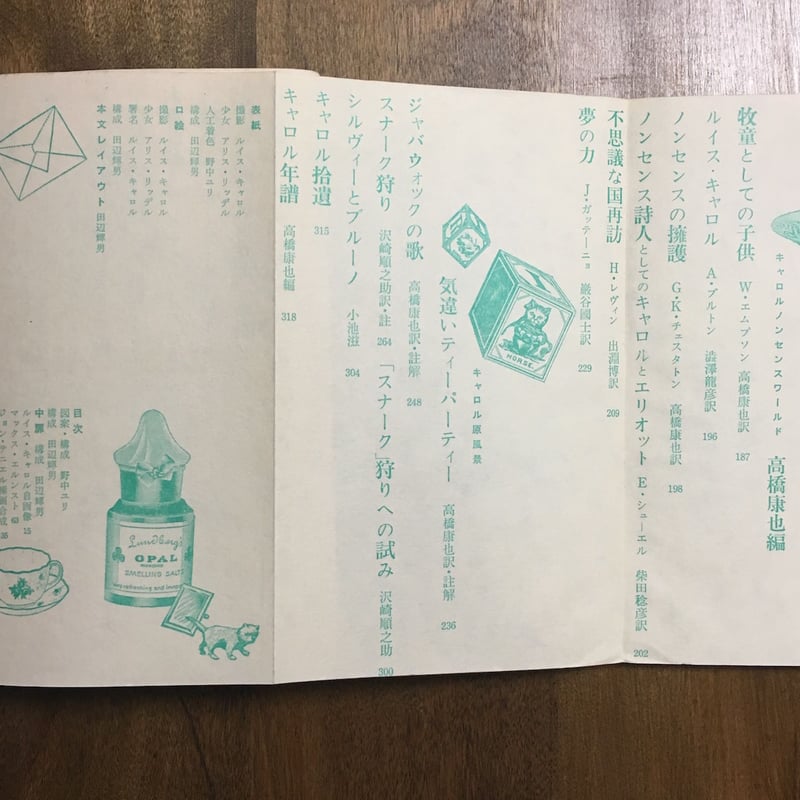 キャロルノンセンスワールド 高橋康也編
牧童としての子供 W・エムプソン 高橋康也訳 187
ルイス・キャロル A・ブルトン 澁澤龍彦訳 196
ノンセンスの擁護 G・K・チェスタトン 高橋康也訳 198
ノンセンス詩人としてのキャロルとエリオット E・シューエル 柴田稔彦訳 202
不思議な国再訪 H・レヴィン 出淵博訳 209
夢の力 J・ガッテーニョ 巖谷國士訳 229
キャロル原風景
気違いティーパーティー 高橋康也訳・註解 236
ジャバウォックの歌 高橋康也訳・註解 248
スナーク狩り 沢崎順之助訳・註 264 「スナーク」狩りへの試み 沢崎順之助 300
シルヴィーとブルーノ 小池滋 304
キャロル拾遺 315
キャロル年譜 高橋康也編 318
HORSE.
表紙
撮影 ルイス・キャロル
少女 アリス・リッデル
人工着色 野中ユリ
構成 田辺輝男
口絵
撮影 ルイス・キャロル
少女 アリス・リッデル
署名 ルイス・キャロル
構成 田辺輝男
本文レイアウト 田辺輝男
目次
図案・構成 野中ユリ
構成 田辺輝男
中扉 構成 田辺輝男
ルイス・キャロル自画像 15
マックス・エルンスト 63
ジョン・テニエル挿画合成
Lundborg's
OPAL
SMELLING SALT
refreshing and